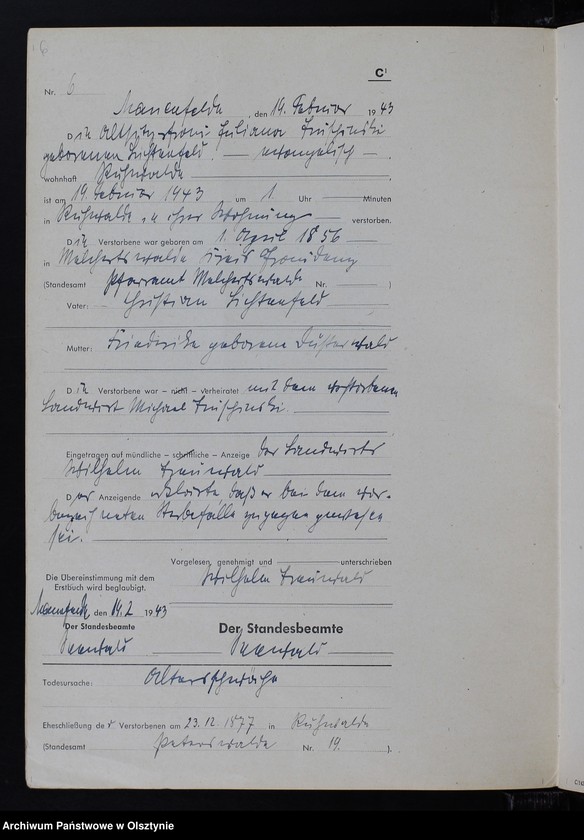 6
C¹
Nr. 6
Marienfelde, den 19. Februar 1943
Die Altsitzerfrau Juliana Truschinski
geborenen Lichtenfeld. — evangelisch —
wohnhaft Ruhwalde
ist am 19. Februar 1943 um 1 Uhr — Minuten
in Ruhwalde in ihrer Wohnung verstorben.
Die Verstorbene war geboren am 1. April 1856
in Melchertswalde
(Standesamt Pfarramt Melchertswalde Nr. )
Vater: Christian Lichtenfeld
Mutter: Friederike geborene Düsterwald
Die Verstorbene war – nicht – verheiratet mit dem verstorbenen
Landwirt Michael Truschinski.
Eingetragen auf mündliche – schriftliche – Anzeige des Landwirts
Wilhelm
Der Anzeigende erklärte, daß er bei dem vor-
bezeichneten Sterbefalle zugegen gewesen
sei.
Vorgelesen, genehmigt und unterschrieben
Wilhelm
Die Übereinstimmung mit dem
Erstbuch wird beglaubigt.
den 19.2. 1943
Der Standesbeamte
Der Standesbeamte
Todesursache: Altersschwäche
Eheschließung der Verstorbenen am 23.12.1877 in Ruhwalde
(Standesamt Peterswalde Nr. 19. ).
Archiwum Państwowe w Olsztynie